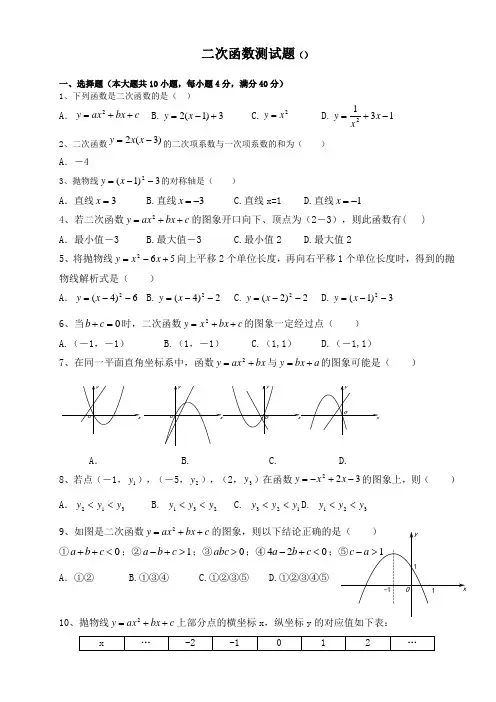 二次函数测试题()
一、选择题（本大题共10小题，每小题4分，满分40分）
1、下列函数是二次函数的是（ ）
A．y=ax²+bx+c B.y=2(x-1)+3 C.y=x² D.y=1/x²+3x-1
2、二次函数y=2x(x-3)的二次项系数与一次项系数的和为（ ）
A．-4
3、抛物线y=(x-1)²-3的对称轴是（ ）
A．直线x=3 B.直线x=-3 C.直线x=1 D.直线x=-1
4、若二次函数y=ax²+bx+c的图象开口向下、顶点为（2－3），则此函数有( )
A．最小值－3 B.最大值－3 C.最小值2 D.最大值2
5、将抛物线y=x²-6x+5向上平移2个单位长度，再向右平移1个单位长度时，得到的抛
物线解析式是（ ）
A．y=(x-4)²-6 B.y=(x-4)²-2 C.y=(x-2)²-2 D.y=(x-1)²-3
6、当b+c=0时，二次函数y=x²+bx+c的图象一定经过点（ ）
A.(－1，－1) B.(1，－1) C.(1,1) D.(－1,1)
7、在同一平面直角坐标系中，函数y=ax²+bx与y=bx+a的图象可能是（ ）
y x O y x O y x O y x O
A． B. C. D.
8、若点（－1，y₁），（－5，y₂），（2，y₃）在函数y=-x²+2x-3的图象上，则（ ）
A．y₂<y₁<y₃ B. y₁<y₃<y₂ C. y₃<y₂<y₁ D. y₁<y₂<y₃
9、如图是二次函数y=ax²+bx+c的图象，则以下结论正确的是（ ）
①a+b+c<0；②a-b+c>1；③abc>0；④4a-2b+c<0；⑤c-a>1
A．①② B.①③④ C.①②③⑤ D.①②③④⑤
y 1 -1 O 1 x
10、抛物线y=ax²+bx+c上部分点的横坐标x，纵坐标y的对应值如下表：
x … -2 -1 0 1 2 …